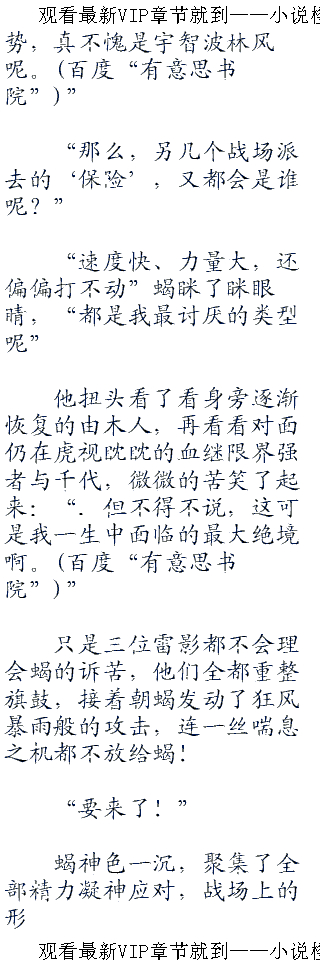 观看最新VIP章节就到——小说检
势，真不愧是宇智波林风
呢。(百度“有意思书
院”)”
“那么，另几个战场派
去的‘保险’，又都会是谁
呢？”
“速度快、力量大，还
偏偏打不动”蝎眯了眯眼
睛，“都是我最讨厌的类型
呢”
他扭头看了看身旁逐渐
恢复的由木人，再看看对面
仍在虎视眈眈的血继限界强
者与千代，微微的苦笑了起
来：“．但不得不说，这可
是我一生中面临的最大绝境
啊。(百度“有意思书
院”)”
只是三位雷影都不会理
会蝎的诉苦，他们全都重整
旗鼓，接着朝蝎发动了狂风
暴雨般的攻击，连一丝喘息
之机都不放给蝎！
“要来了！”
蝎神色一沉，聚集了全
部精力凝神应对，战场上的
形
观看最新VIP章节就到——小说检